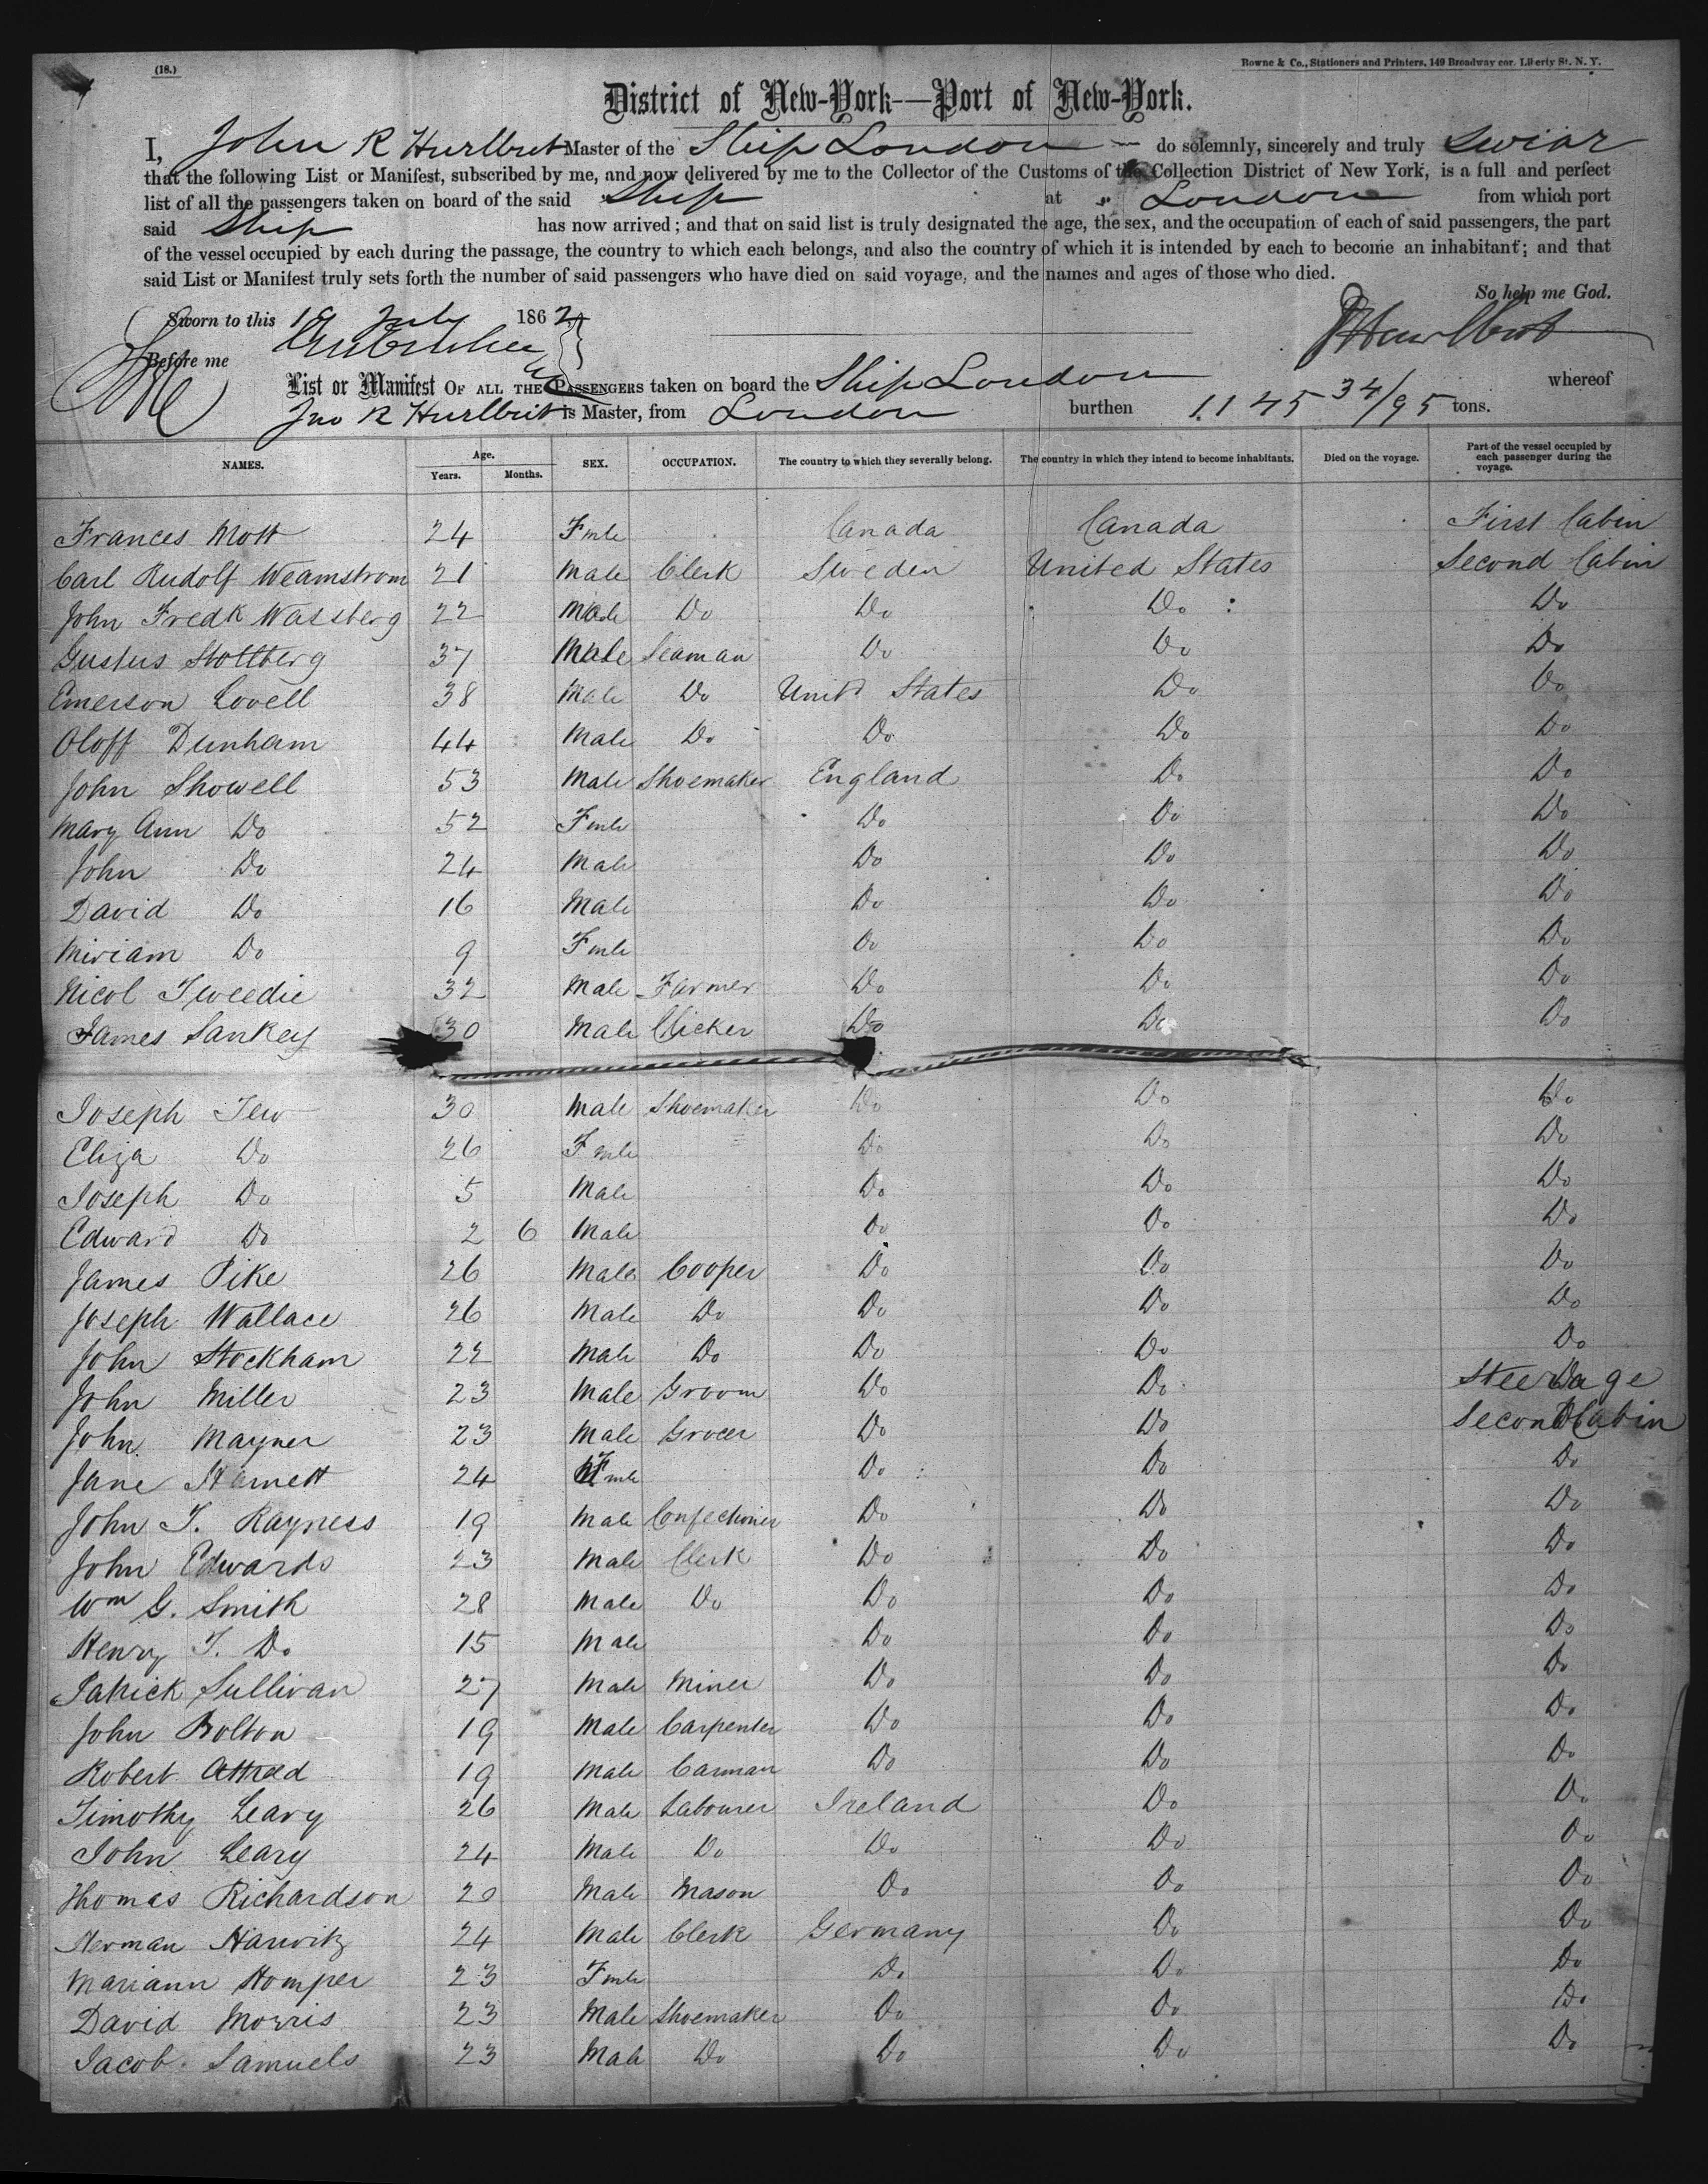 (18.)
Bowne & Co., Stationers and Printers, 149 Broadway cor. Liberty St. N. Y.
District of New-York—Port of New-York.
I, John R Hurlbut Master of the Ship London do solemnly, sincerely and truly swear
that the following List or Manifest, subscribed by me, and now delivered by me to the Collector of the Customs of the Collection District of New York, is a full and perfect
list of all the passengers taken on board of the said Ship at London from which port
said Ship has now arrived; and that on said list is truly designated the age, the sex, and the occupation of each of said passengers, the part
of the vessel occupied by each during the passage, the country to which each belongs, and also the country of which it is intended by each to become an inhabitant; and that
said List or Manifest truly sets forth the number of said passengers who have died on said voyage, and the names and ages of those who died.
So help me God.
Sworn to this 19 July 1862
J R Hurlbut
Before me
List or Manifest OF ALL THE PASSENGERS taken on board the Ship London whereof
Jno R Hurlbut is Master, from London burthen 1145 34/95 tons.
NAMES. Age. Years. Months. SEX. OCCUPATION. The country to which they severally belong. The country in which they intend to become inhabitants. Died on the voyage. Part of the vessel occupied by each passenger during the voyage.
Frances Mott 24 Fmle Canada Canada First Cabin
Carl Rudolf Weamstrom 21 Male Clerk Sweden United States Second Cabin
John Fredk Wassberg 22 Male Do Do Do Do
Gustus Stoltberg 37 Male Seaman Do Do Do
Emerson Lovell 38 Male Do Unitd States Do Do
Oloff Dunham 44 Male Do Do Do Do
John Showell 53 Male Shoemaker England Do Do
Mary Ann Do 52 Fmle Do Do Do
John Do 24 Male Do Do Do
David Do 16 Male Do Do Do
Miriam Do 9 Fmle Do Do Do
Nicol Tweedie 32 Male Farmer Do Do Do
James Sankey 30 Male Clicker Do Do Do
Joseph Tew 30 Male Shoemaker Do Do Do
Eliza Do 26 Fmle Do Do Do
Joseph Do 5 Male Do Do Do
Edward Do 2 6 Male Do Do Do
James Pike 26 Male Cooper Do Do Do
Joseph Wallace 26 Male Do Do Do Do
John Stockham 22 Male Do Do Do Do
John Miller 23 Male Groom Do Do Steerage
John Mayner 23 Male Grocer Do Do Second Cabin
Jane Harnett 24 Fmle Do Do Do
John T. Rayness 19 Male Confectioner Do Do Do
John Edwards 23 Male Clerk Do Do Do
Wm G. Smith 28 Male Do Do Do Do
Henry T. Do 15 Male Do Do Do
Patrick Sullivan 27 Male Miner Do Do Do
John Bolton 19 Male Carpenter Do Do Do
Robert Attred 19 Male Carman Do Do Do
Timothy Leary 26 Male Labourer Ireland Do Do
John Leary 24 Male Do Do Do Do
Thomas Richardson 20 Male Mason Do Do Do
Herman Harwitz 24 Male Clerk Germany Do Do
Mariann Homper 23 Fmle Do Do Do
David Morris 23 Male Shoemaker Do Do Do
Jacob Samuels 23 Male Do Do Do Do